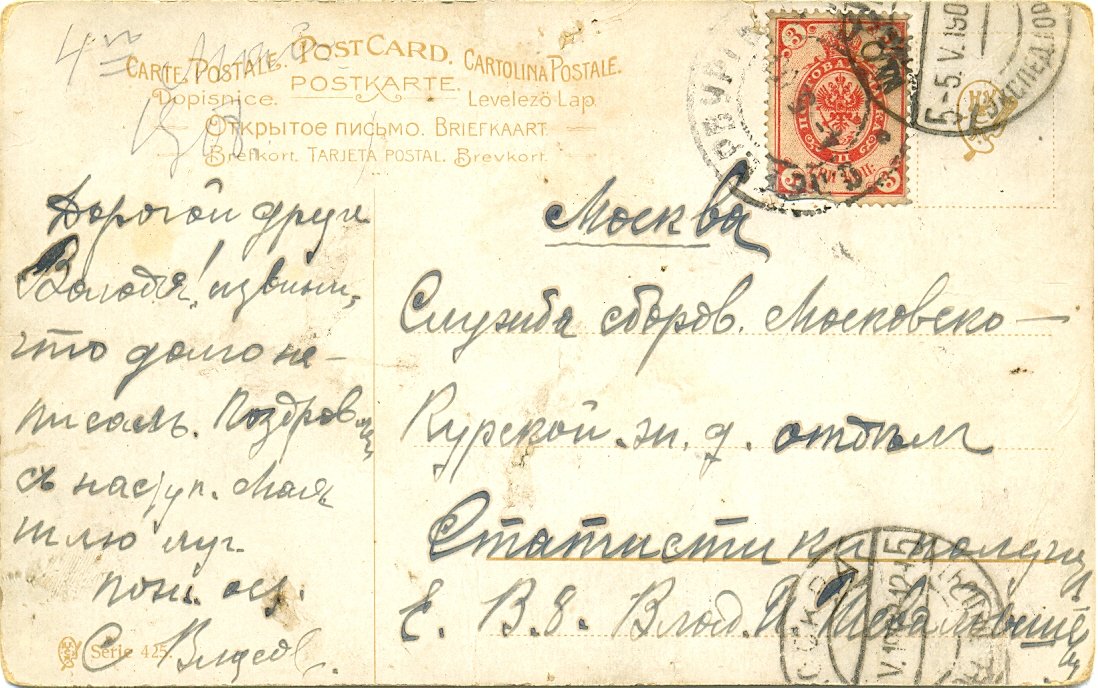 CARTE POSTALE. POST CARD. CARTOLINA POSTALE.
POSTKARTE.
Dopisnice. Levelező-Lap.
Открытое письмо. BRIEFKAART.
Brefkort. TARJETA POSTAL. Brevkort.
Дорогой другъ
Володя! извини,
что долго не-
писалъ. Поздров
съ наступ. Мая.
шлю луч.
С.
Série 425.
Москва
Служба сборов. Московско-
Курской ж. д. отдѣлъ
Статистики получ
Е. В. Б. Влад. И.
3
3
5-5.V.190
МОСКВА